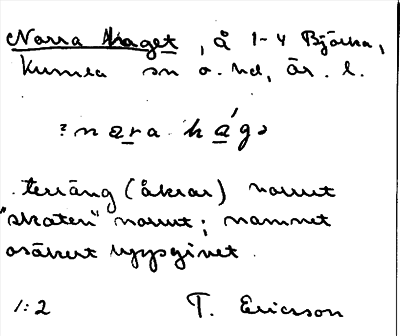 Norra Haget, å 1-4 Björka,
Kumla sn o. hd, Är. l.
? nara hága
terräng (åkrar) norrut
"skaten" norrut; namnet
osäkert uppgivet.
1:2 T. Ericsson